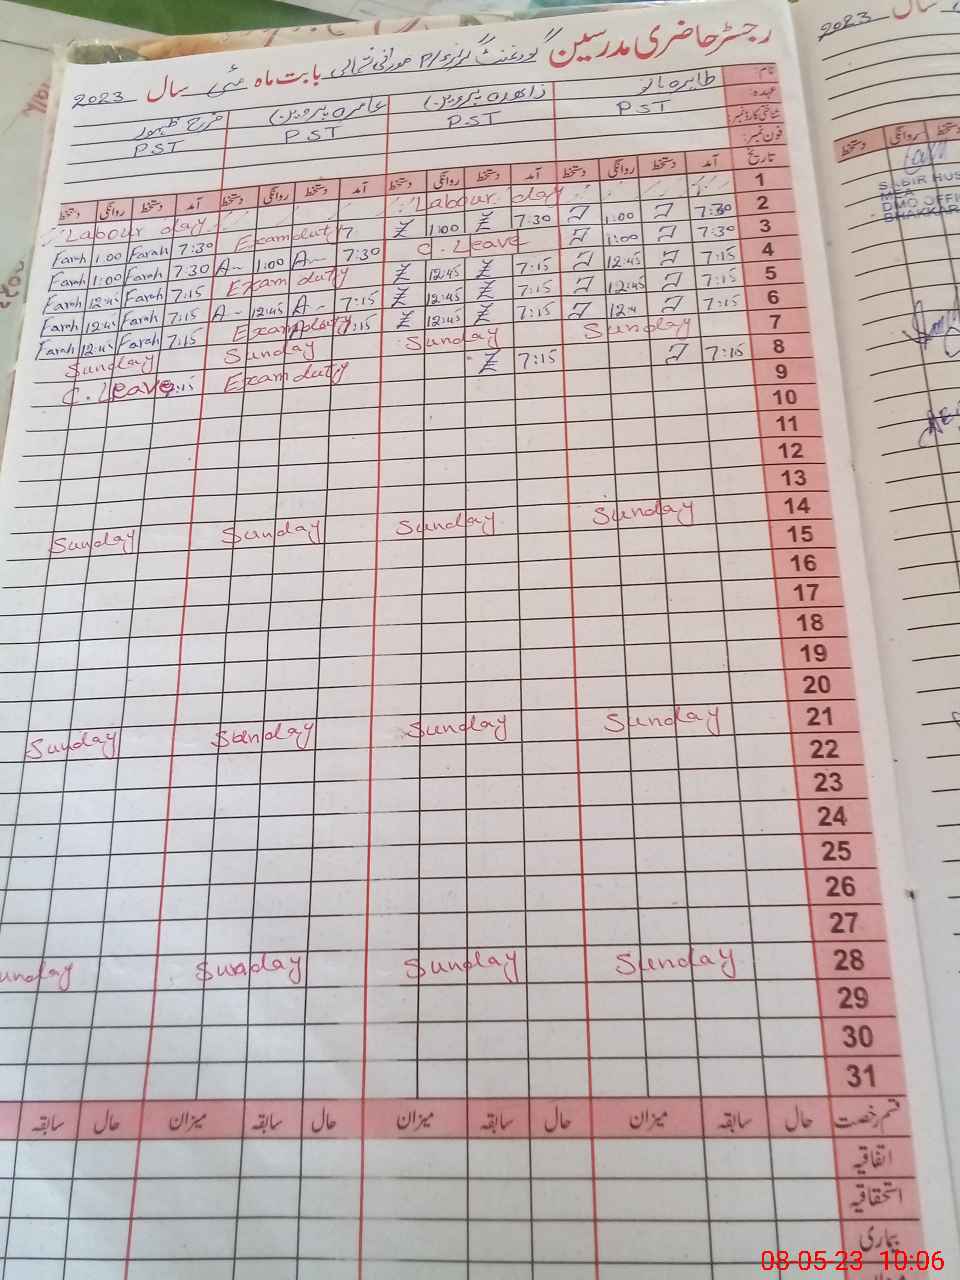 رجسٹر حاضری مدرسین گورنمنٹ گرلز P/S شمالی بابت ماہ مئی سال 2023
نام: طاہرہ بانو زاہدہ پروین عامرہ پروین فرح ظہور
عہدہ: PST PST PST PST
شناختی کارڈ نمبر:
فون نمبر:
تاریخ آمد دستخط روانگی دستخط آمد دستخط روانگی دستخط آمد دستخط روانگی دستخط آمد دستخط روانگی دستخط
1 Labour day Labour day
2 7:30 1:00 7:30 Z 1:00 Z 7 Exam duty 7:30 Farah 1:00 Farah
3 7:30 1:00 C. Leave 7:30 A 1:00 A 7:30 Farah 1:00 Farah
4 7:15 12:45 7:15 Z 12:45 Z Exam duty 7:15 Farah 12:45 Farah
5 7:15 12:45 7:15 Z 12:45 Z 7:15 A 12:45 A 7:15 Farah 12:45 Farah
6 7:15 12:4 7:15 Z 12:45 Z 7:15 Exam duty 7:15 Farah 12:45 Farah
7 Sunday Sunday Sunday Sunday
8 7:15 7:15 Z Exam duty C. Leave
9
10
11
12
13
14 Sunday Sunday Sunday Sunday
15
16
17
18
19
20
21 Sunday Sunday Sunday Sunday
22
23
24
25
26
27
28 Sunday Sunday Sunday Sunday
29
30
31
قسم رخصت حال سابقہ میزان حال سابقہ میزان حال سابقہ میزان حال سابقہ
اتفاقیہ
استحقاقیہ
بیماری
2023 سال
دستخط روانگی دستخط
SABIR HUS
MEA
DMO OFFI
BHAKKAR
08-05-23 10:06